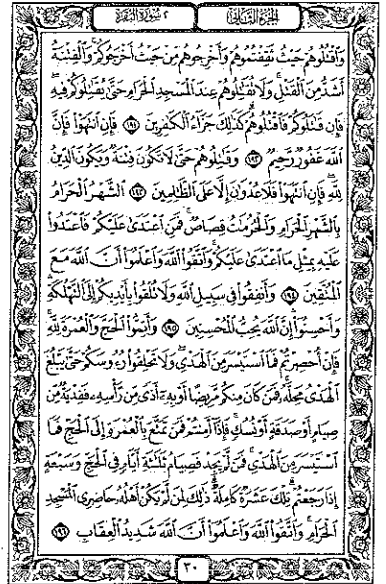 الجزء الثاني
٢ سورة البقرة
وَاقْتُلُوهُمْ حَيْثُ ثَقِفْتُمُوهُمْ وَأَخْرِجُوهُم مِّنْ حَيْثُ أَخْرَجُوكُمْ وَالْفِتْنَةُ
أَشَدُّ مِنَ الْقَتْلِ وَلَا تُقَاتِلُوهُمْ عِندَ الْمَسْجِدِ الْحَرَامِ حَتَّىٰ يُقَاتِلُوكُمْ فِيهِ
فَإِن قَاتَلُوكُمْ فَاقْتُلُوهُمْ كَذَٰلِكَ جَزَاءُ الْكَافِرِينَ ﴿١٩١﴾ فَإِنِ انتَهَوْا فَإِنَّ
اللَّهَ غَفُورٌ رَّحِيمٌ ﴿١٩٢﴾ وَقَاتِلُوهُمْ حَتَّىٰ لَا تَكُونَ فِتْنَةٌ وَيَكُونَ الدِّينُ
لِلَّهِ فَإِنِ انتَهَوْا فَلَا عُدْوَانَ إِلَّا عَلَى الظَّالِمِينَ ﴿١٩٣﴾ الشَّهْرُ الْحَرَامُ
بِالشَّهْرِ الْحَرَامِ وَالْحُرُمَاتُ قِصَاصٌ فَمَنِ اعْتَدَىٰ عَلَيْكُمْ فَاعْتَدُوا
عَلَيْهِ بِمِثْلِ مَا اعْتَدَىٰ عَلَيْكُمْ وَاتَّقُوا اللَّهَ وَاعْلَمُوا أَنَّ اللَّهَ مَعَ
الْمُتَّقِينَ ﴿١٩٤﴾ وَأَنفِقُوا فِي سَبِيلِ اللَّهِ وَلَا تُلْقُوا بِأَيْدِيكُمْ إِلَى التَّهْلُكَةِ
وَأَحْسِنُوا إِنَّ اللَّهَ يُحِبُّ الْمُحْسِنِينَ ﴿١٩٥﴾ وَأَتِمُّوا الْحَجَّ وَالْعُمْرَةَ لِلَّهِ
فَإِنْ أُحْصِرْتُمْ فَمَا اسْتَيْسَرَ مِنَ الْهَدْيِ وَلَا تَحْلِقُوا رُءُوسَكُمْ حَتَّىٰ يَبْلُغَ
الْهَدْيُ مَحِلَّهُ فَمَن كَانَ مِنكُم مَّرِيضًا أَوْ بِهِ أَذًى مِّن رَّأْسِهِ فَفِدْيَةٌ مِّن
صِيَامٍ أَوْ صَدَقَةٍ أَوْ نُسُكٍ فَإِذَا أَمِنتُمْ فَمَن تَمَتَّعَ بِالْعُمْرَةِ إِلَى الْحَجِّ فَمَا
اسْتَيْسَرَ مِنَ الْهَدْيِ فَمَن لَّمْ يَجِدْ فَصِيَامُ ثَلَاثَةِ أَيَّامٍ فِي الْحَجِّ وَسَبْعَةٍ
إِذَا رَجَعْتُمْ تِلْكَ عَشَرَةٌ كَامِلَةٌ ذَٰلِكَ لِمَن لَّمْ يَكُنْ أَهْلُهُ حَاضِرِي الْمَسْجِدِ
الْحَرَامِ وَاتَّقُوا اللَّهَ وَاعْلَمُوا أَنَّ اللَّهَ شَدِيدُ الْعِقَابِ ﴿١٩٦﴾
٣٠